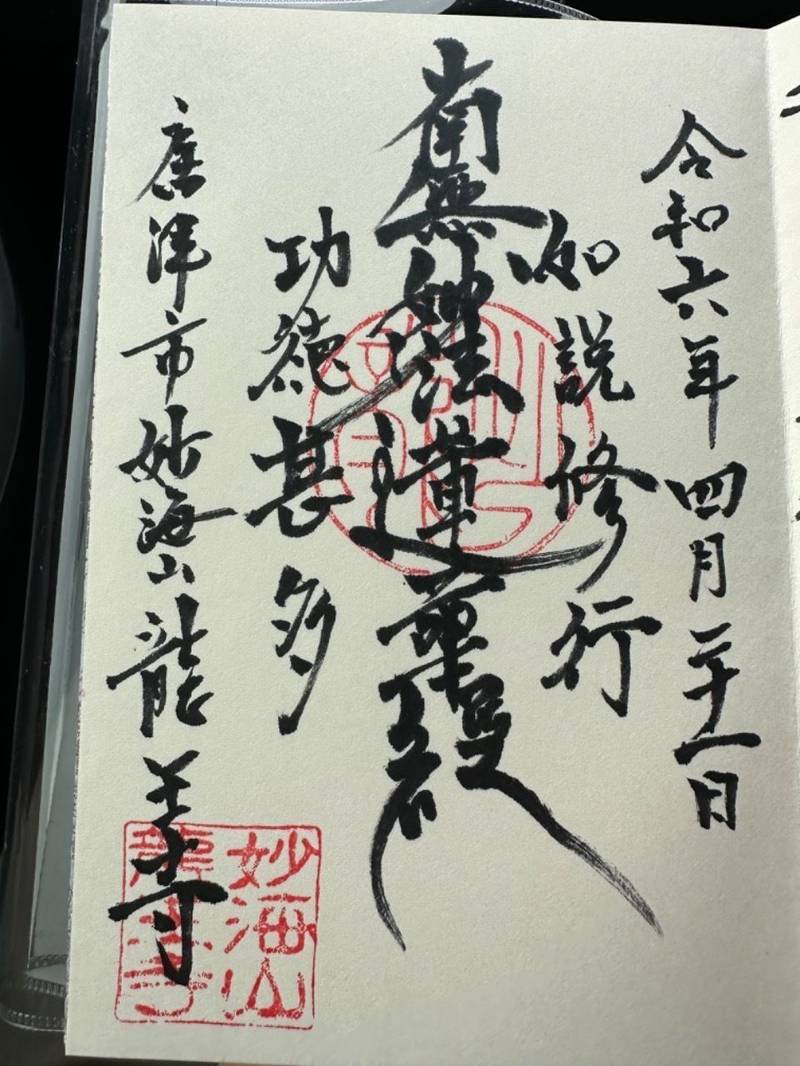 令和六年四月二十一日
如説修行
南無妙法蓮華経
功徳甚多
唐津市妙海山龍王寺
妙海山
龍王寺